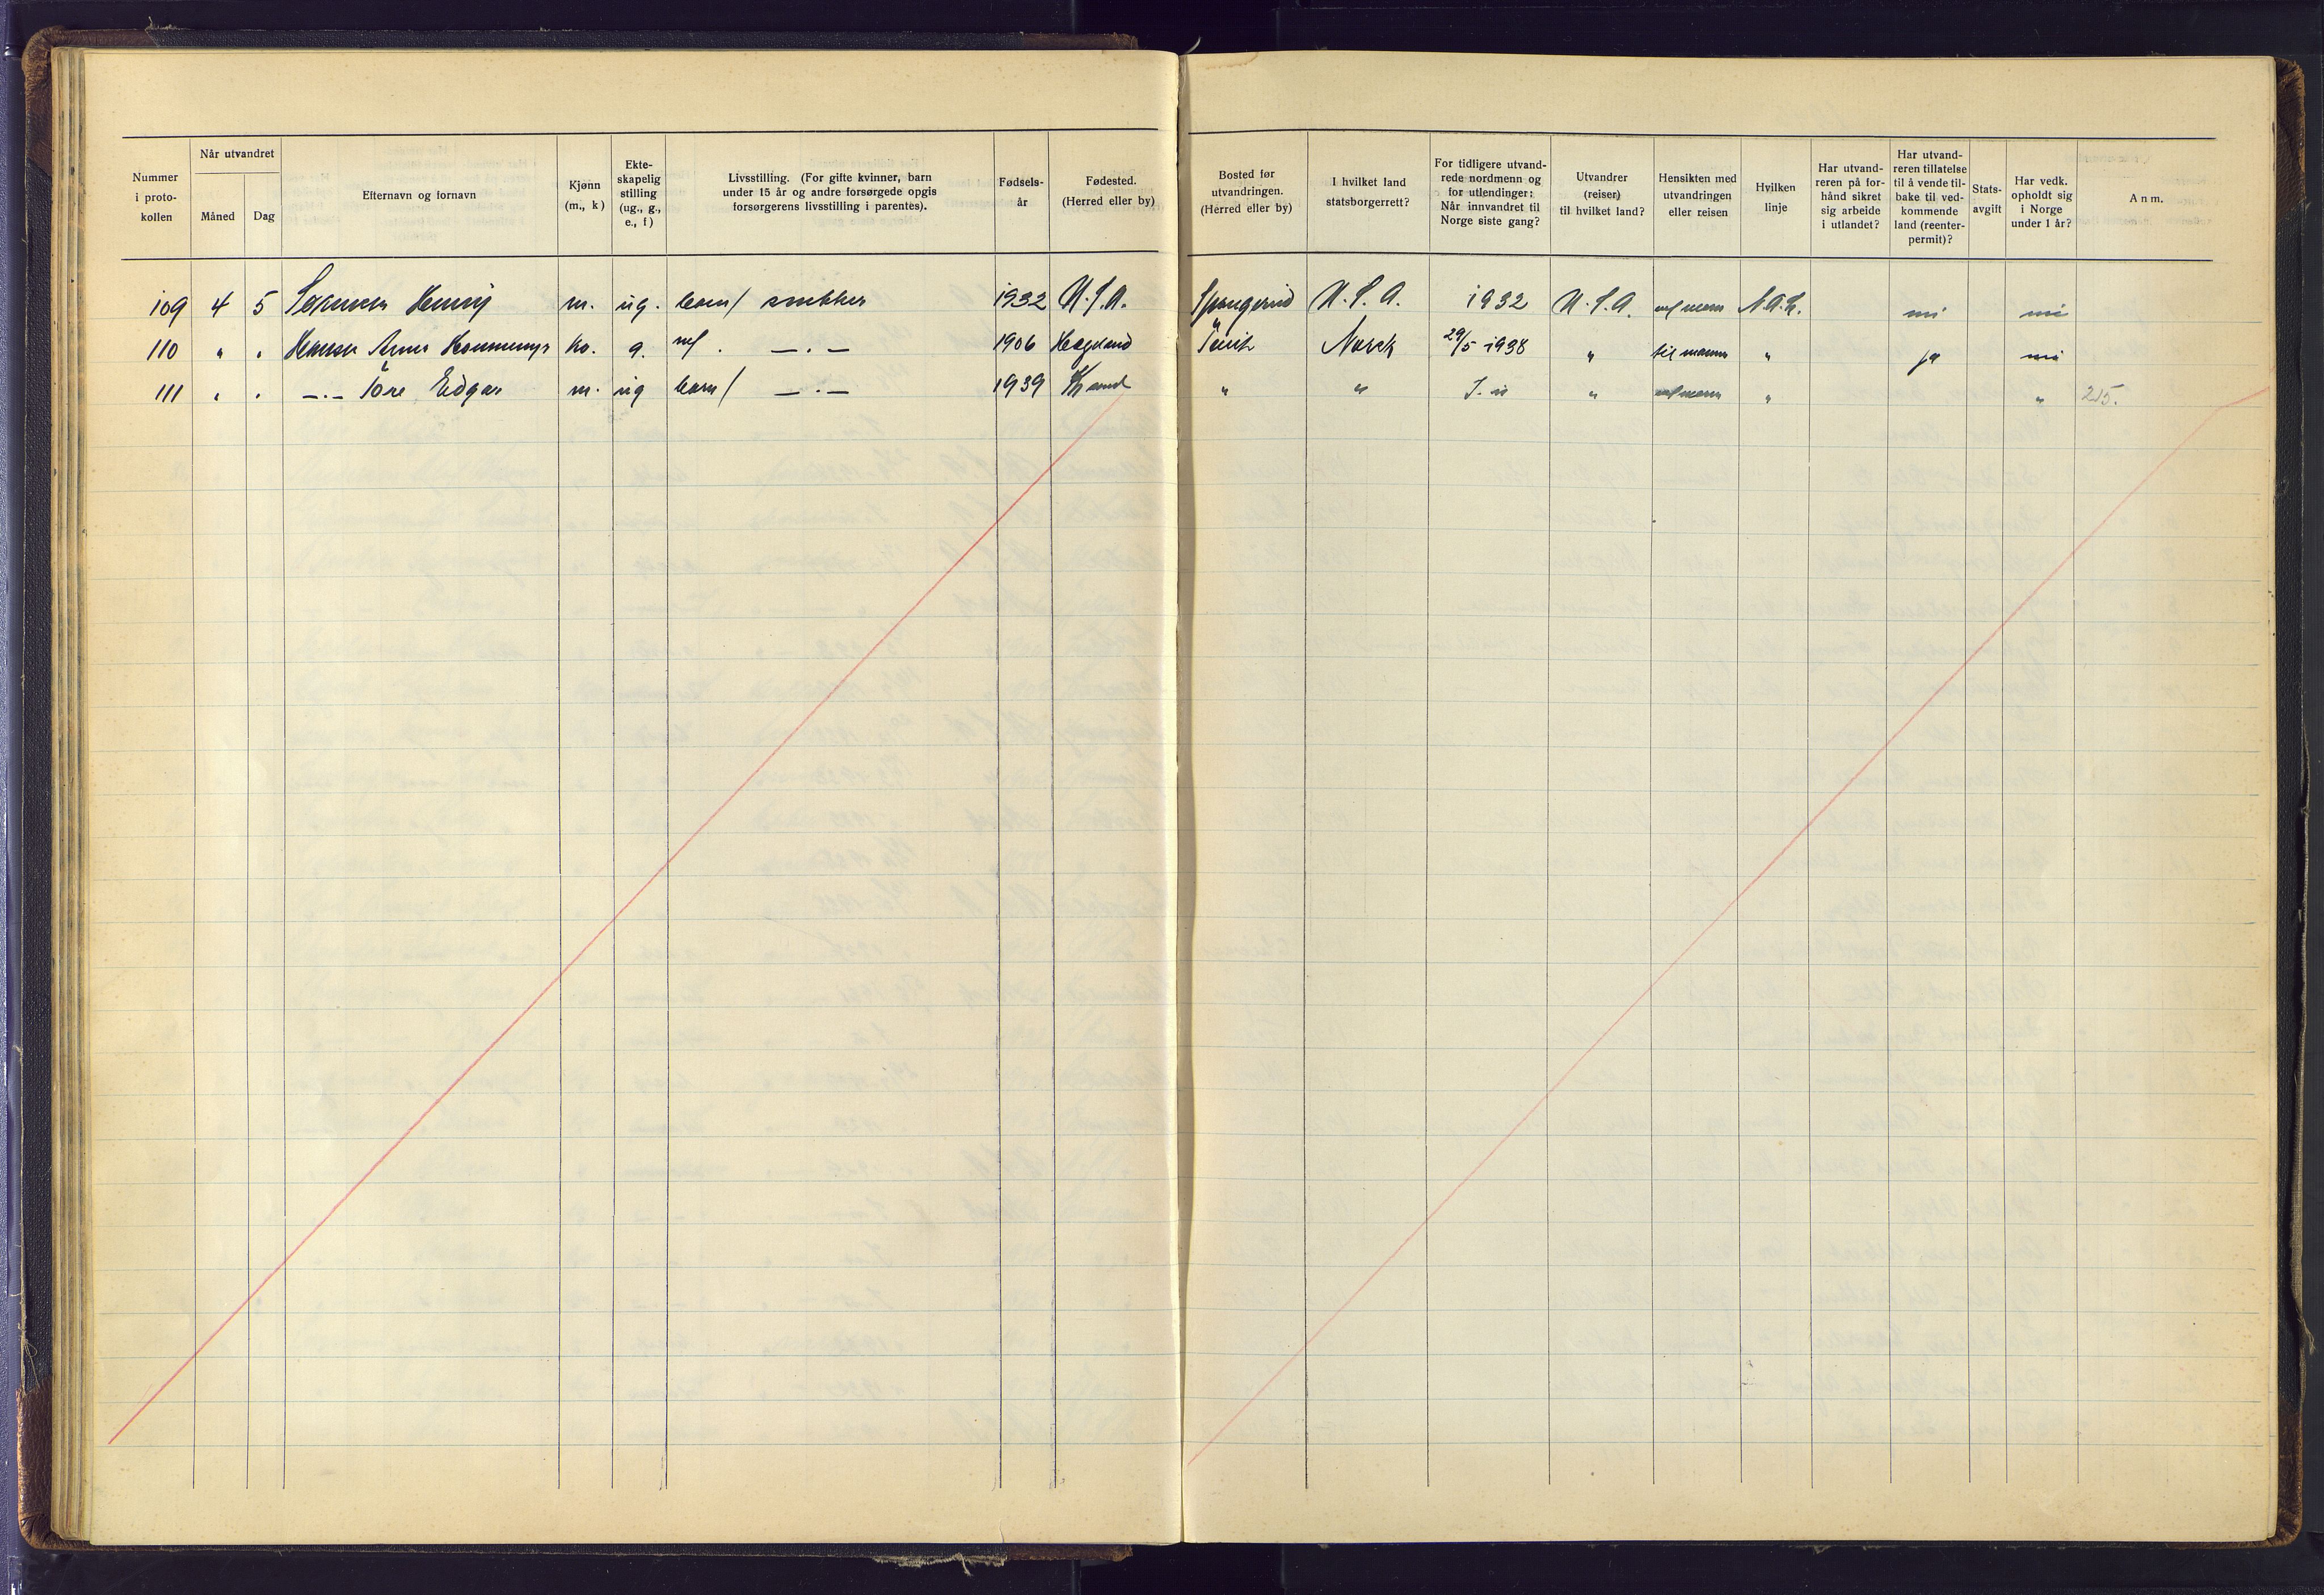 Nummer i proto-kollen | Når utvandret Måned Dag | Efternavn og fornavn | Kjønn (m., k) | Ekte-skapelig stilling (ug., g., e., f) | Livsstilling. (For gifte kvinner, barn under 15 år og andre forsørgede opgis forsørgerens livsstilling i parentes). | Fødsels-år | Fødested. (Herred eller by) | Bosted før utvandringen. (Herred eller by) | I hvilket land statsborgerrett? | For tidligere utvand-rede nordmenn og for utlendinger: Når innvandret til Norge siste gang? | Utvandrer (reiser) til hvilket land? | Hensikten med utvandringen eller reisen | Hvilken linje | Har utvand-reren på for-hånd sikret sig arbeide i utlandet? | Har utvand-reren tillatelse til å vende til-bake til ved-kommende land (reenter-permit)? | Stats-avgift | Har vedk. opholdt sig i Norge under 1 år? | Anm.
109 4 5 Henry m. ug. barn/ snekker 1932 U.S.A. Spangereid U.S.A. 1932 U.S.A. N.A.L. nei nei
110 " " Hansen Anna ko. g. —.— 1906 Hægeland Norsk 29/5 1938 " til mann " ja nei
111 " " —.— Tore Edgar m. ug barn/ —.— 1939 Krsand " " " " " 215.